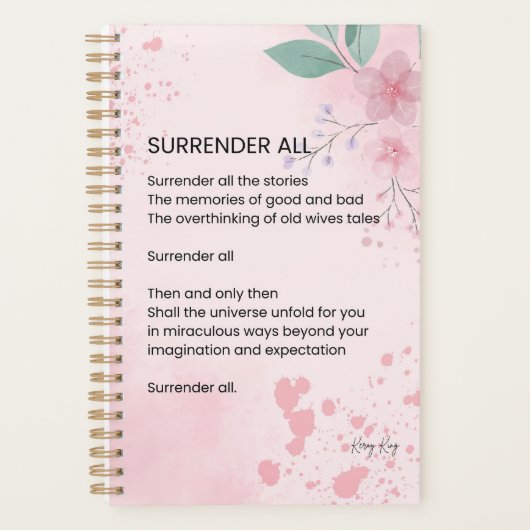 SURRENDER ALL
Surrender all the stories
The memories of good and bad
The overthinking of old wives tales
Surrender all
Then and only then
Shall the universe unfold for you
in miraculous ways beyond your
imagination and expectation
Surrender all.
Keray King